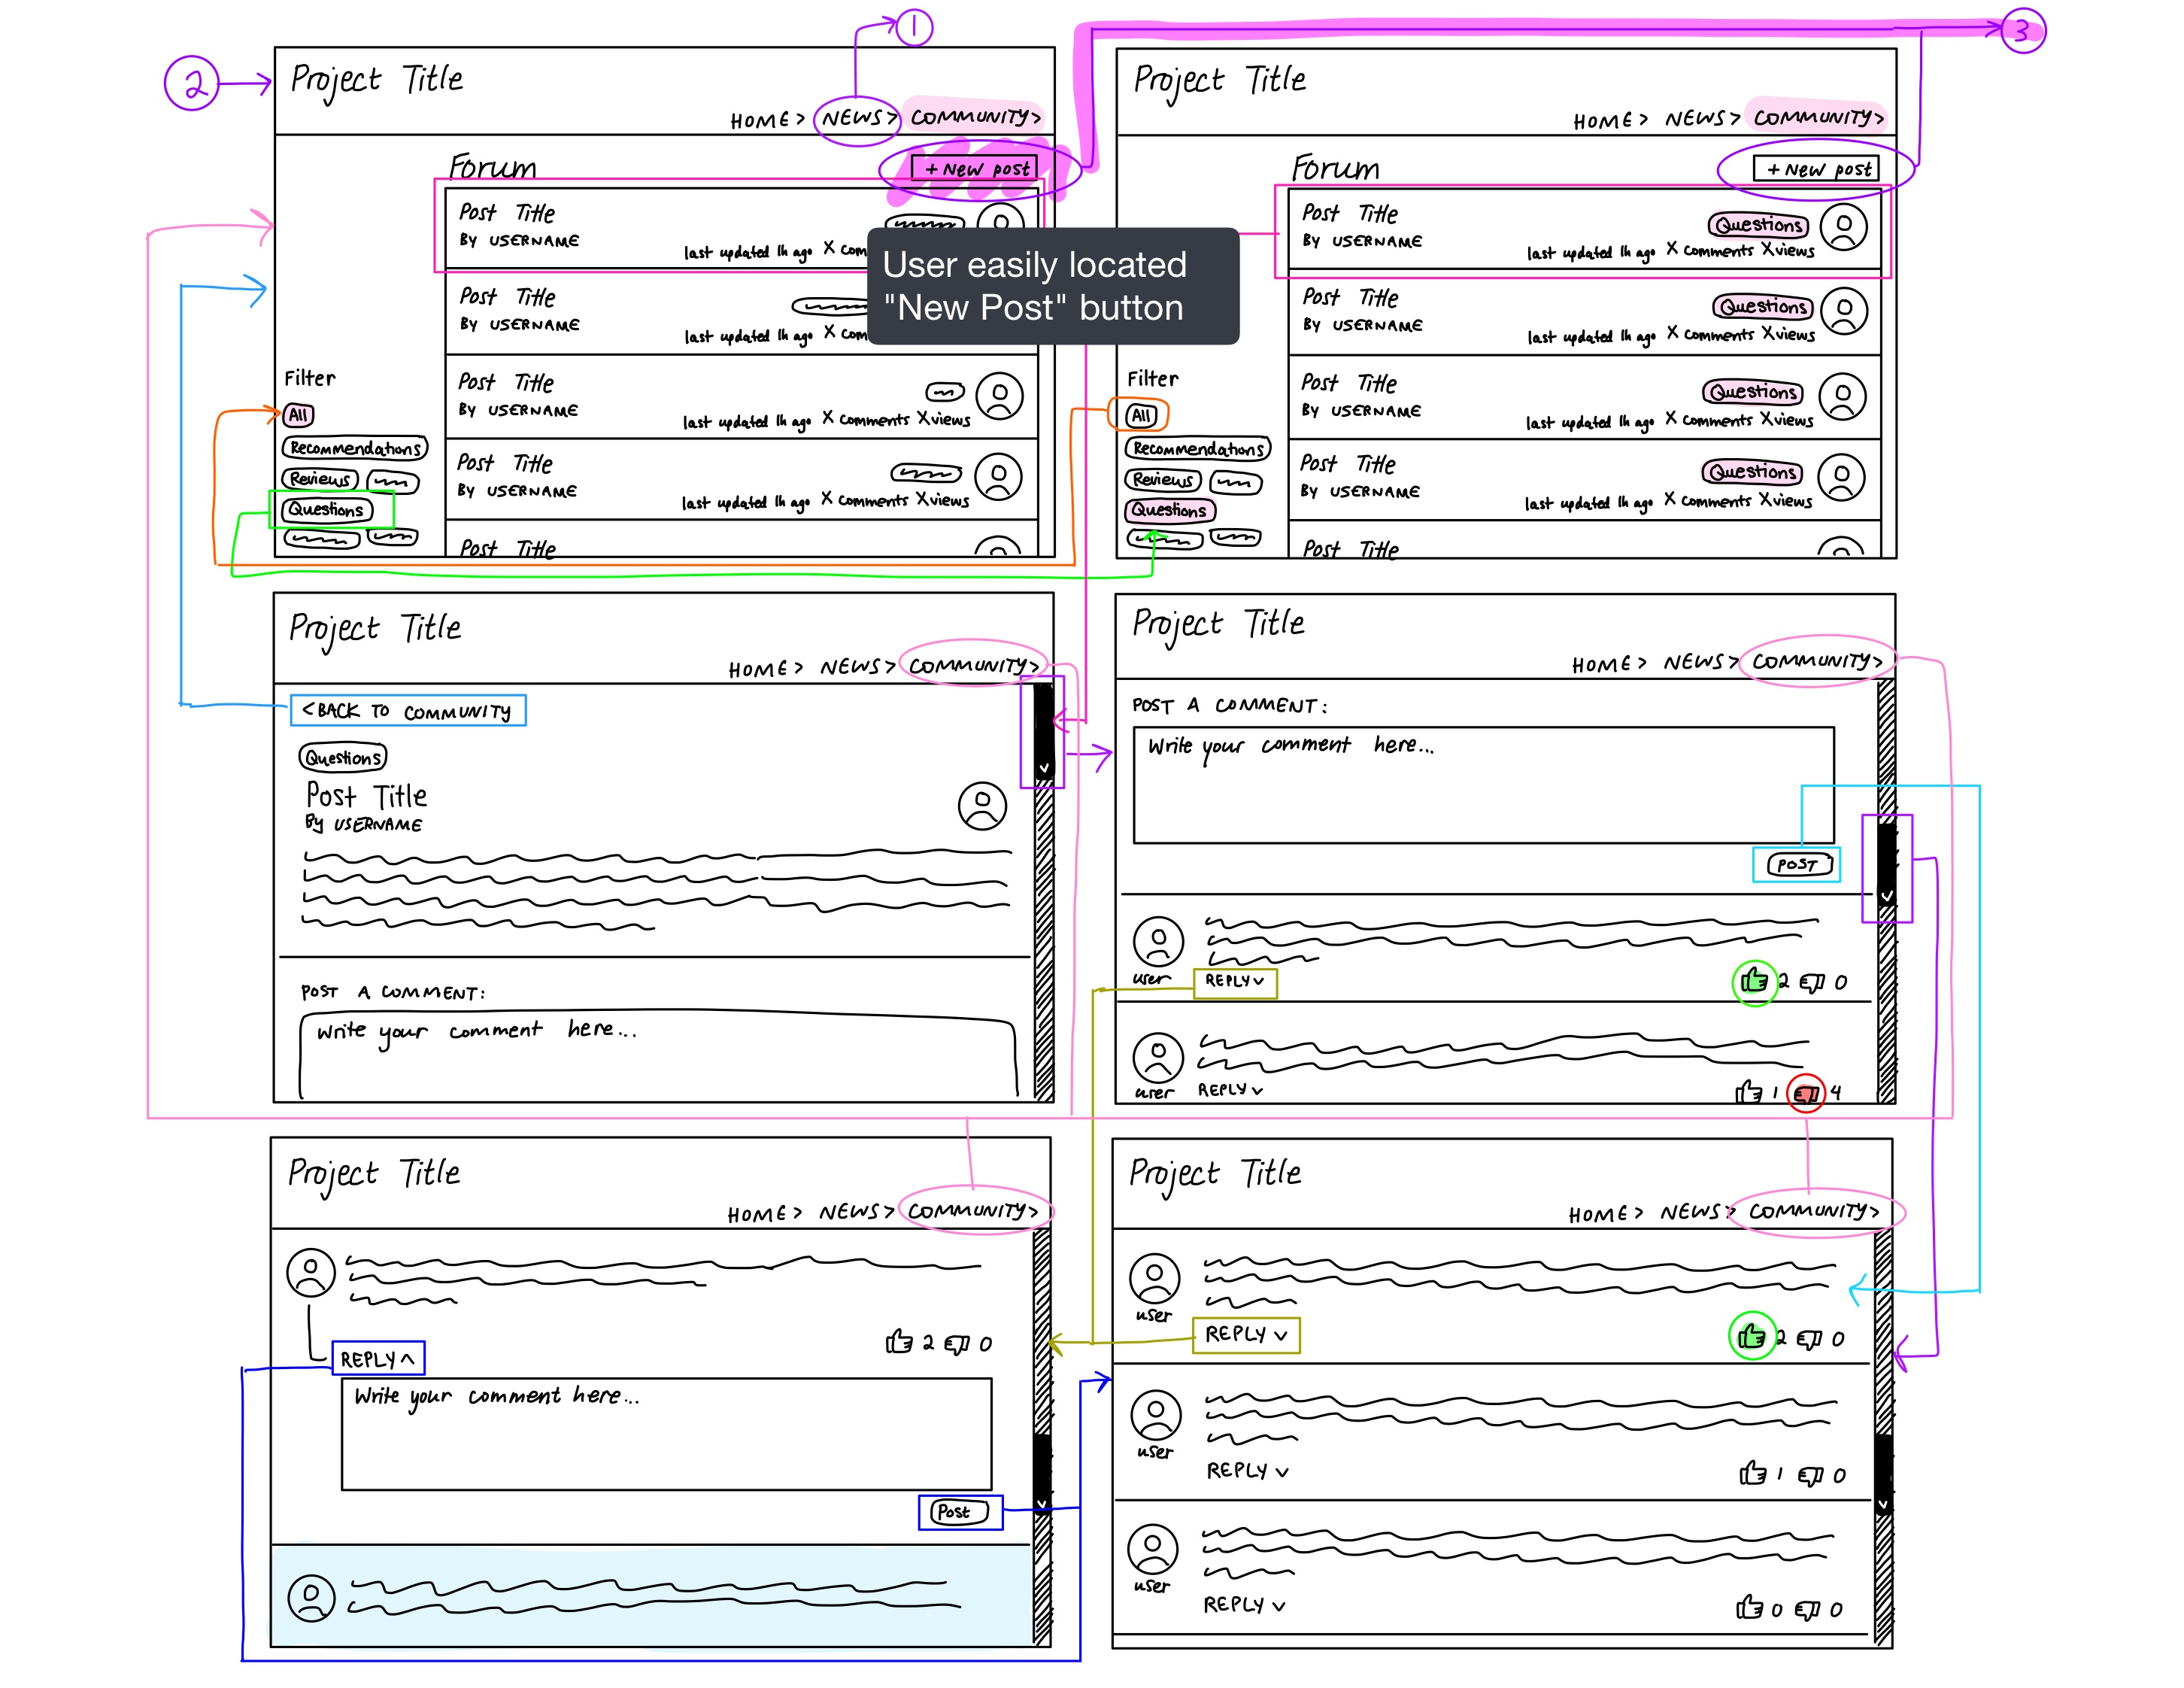 1
2
3
Project Title
HOME > NEWS > COMMUNITY >
Forum
+ New post
Post Title
BY USERNAME
last updated 1h ago X Com
Post Title
BY USERNAME
last updated 1h ago X Com
Post Title
BY USERNAME
last updated 1h ago X Comments X views
Post Title
BY USERNAME
last updated 1h ago X Comments X views
Post Title
Filter
All
Recommendations
Reviews
Questions
User easily located
"New Post" button
Project Title
HOME > NEWS > COMMUNITY >
Forum
+ New post
Post Title
BY USERNAME
Questions
last updated 1h ago X Comments X views
Post Title
BY USERNAME
Questions
last updated 1h ago X Comments X views
Post Title
BY USERNAME
Questions
last updated 1h ago X Comments X views
Post Title
BY USERNAME
Questions
last updated 1h ago X Comments X views
Post Title
Filter
All
Recommendations
Reviews
Questions
Project Title
HOME > NEWS > COMMUNITY >
< BACK TO COMMUNITY
Questions
Post Title
By USERNAME
POST A COMMENT:
Write your comment here...
Project Title
HOME > NEWS > COMMUNITY >
POST A COMMENT:
Write your comment here...
POST
user
REPLY
2 0
user
REPLY
1 4
Project Title
HOME > NEWS > COMMUNITY >
2 0
REPLY
Write your comment here...
Post
Project Title
HOME > NEWS > COMMUNITY >
user
REPLY
2 0
user
REPLY
1 0
user
REPLY
0 0